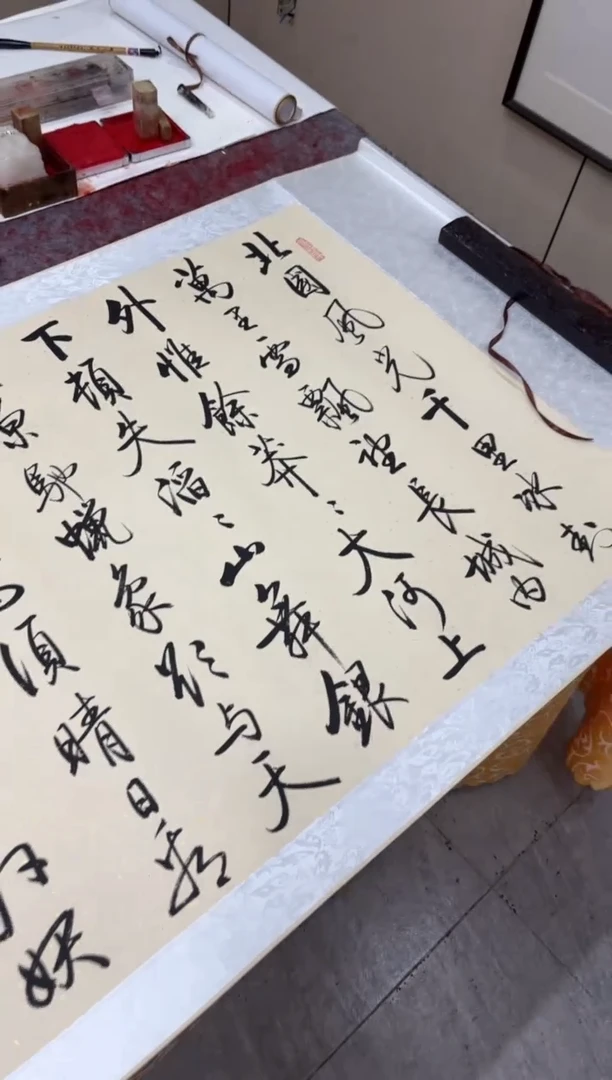 北國風光千里冰封
萬里雪飄望長城内
外惟餘莽〻大河上
下頓失滔〻山舞銀
原馳蠟象欲与天
須晴日看
妖